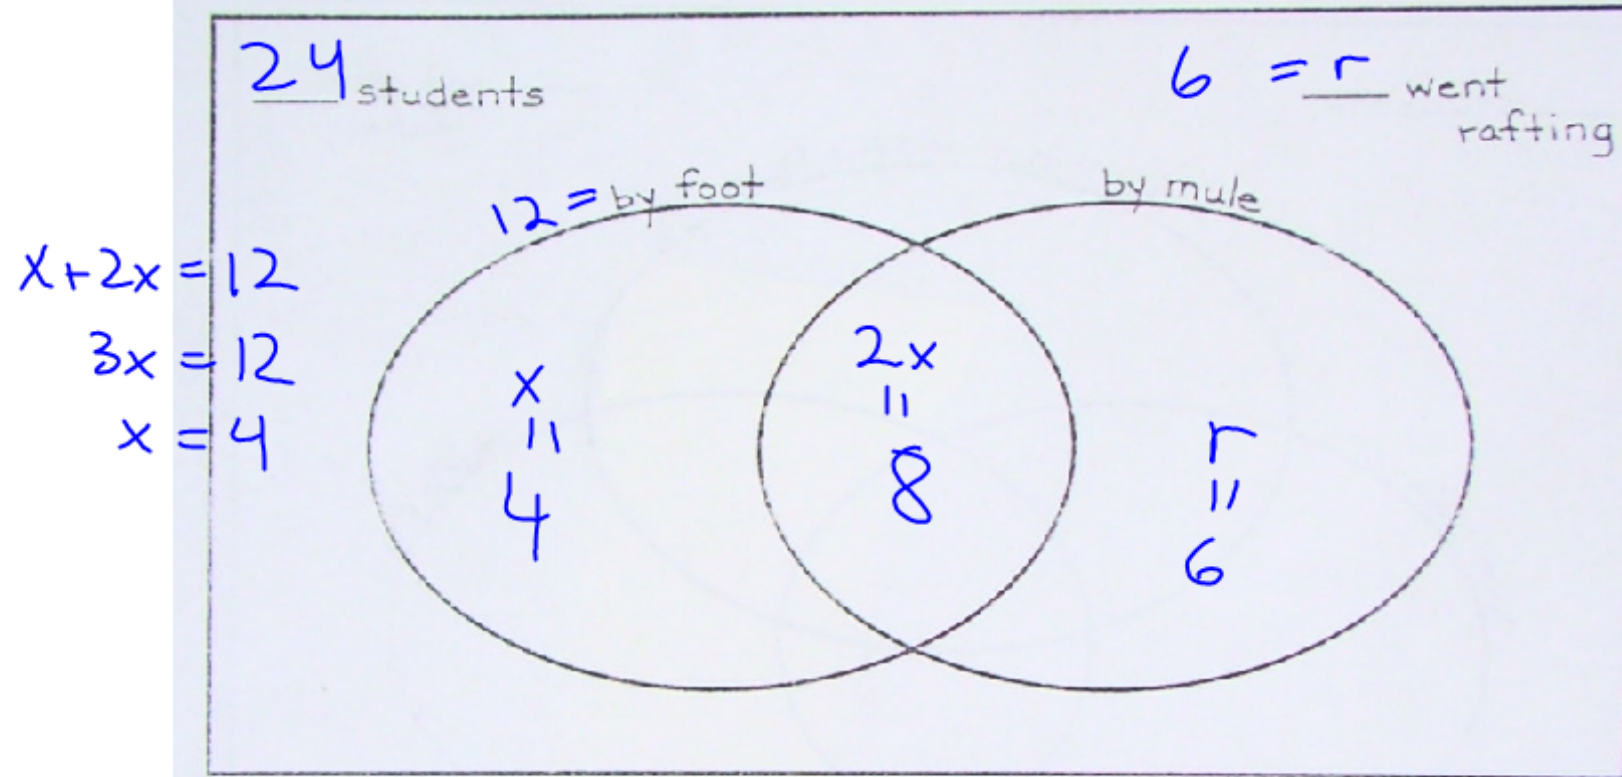 24 students
6 = r went
rafting
12 = by foot
by mule
x+2x = 12
3x = 12
x = 4
x
=
4
2x
=
8
r
=
6